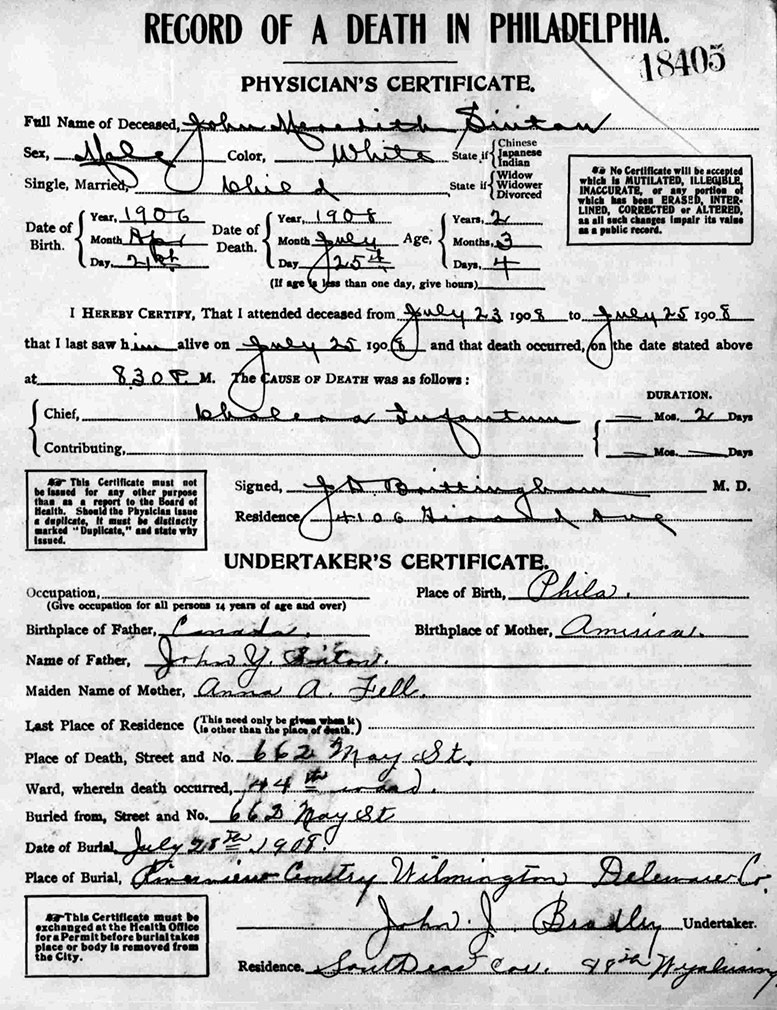 RECORD OF A DEATH IN PHILADELPHIA.
18405
PHYSICIAN'S CERTIFICATE.
Full Name of Deceased, John Meredith Sinton
Sex, Male Color, White State if { Chinese Japanese Indian
Single, Married, Child State if { Widow Widower Divorced
☞ No Certificate will be accepted
which is MUTILATED, ILLEGIBLE,
INACCURATE, or any portion of
which has been ERASED, INTER-
LINED, CORRECTED or ALTERED,
as all such changes impair its value
as a public record.
Date of Birth. { Year, 1906 Month Apr Day, 21st
Date of Death. { Year, 1908 Month July Day 25th
Age, { Years, 2 Months, 3 Days, 4
(If age is less than one day, give hours)
I HEREBY CERTIFY, That I attended deceased from July 23 1908 to July 25 1908
that I last saw him alive on July 25 1908 and that death occurred, on the date stated above
at 8.30 P. M. The CAUSE OF DEATH was as follows:
DURATION.
Chief, Cholera Infantum — Mos. 2 Days
Contributing, — Mos. — Days
☞ This Certificate must not
be issued for any other purpose
than as a report to the Board of
Health. Should the Physician issue
a duplicate, it must be distinctly
marked "Duplicate," and state why
issued.
Signed, J D. Brittingham M. D.
Residence, 4106 Girard Ave
UNDERTAKER'S CERTIFICATE.
Occupation, Place of Birth, Phila.
(Give occupation for all persons 14 years of age and over)
Birthplace of Father, Canada. Birthplace of Mother, America.
Name of Father, John Y. Sinton.
Maiden Name of Mother, Anna A. Fell.
Last Place of Residence (This need only be given when it is other than the place of death.)
Place of Death, Street and No. 662 May St.
Ward, wherein death occurred, 44th ward.
Buried from, Street and No. 662 May St
Date of Burial, July 28th 1908.
Place of Burial, Riverview Cemetry Wilmington Deleware Co.
☞ This Certificate must be
exchanged at the Health Office
for a Permit before burial takes
place or body is removed from
the City.
John J. Bradley Undertaker.
Residence. South East Cor. Wyalusing